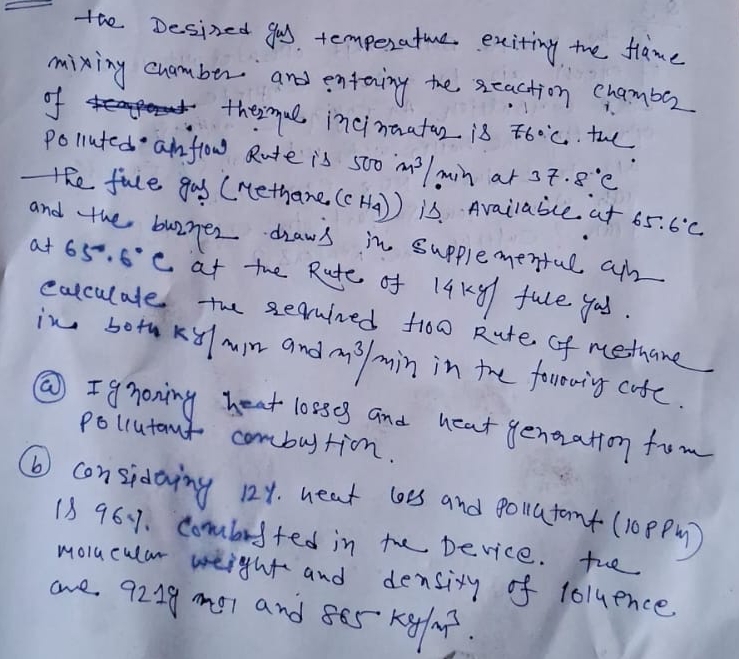 the Desired gas temperature exiting the flame
mixing chamber and entering the reaction chamber
of thermal incinerator is 760°C. the
Polluted airflow Rate is 500 m³/min at 37.8°C
the fule gas (Methane (CH4)) is Available at 65.6°C
and the burner draws in supplemental air
at 65.6°C at the Rate of 14 kg/ fule gas.
Calculate the required flow Rate of methane
in both kg/min and m³/min in the following case.
(a) Ignoring heat losses and heat generation from
Pollutant combustion.
(b) Considering 12%. heat loss and pollutant (10 PPM)
is 96%. Combusted in the Device. the
Molecular weight and density of toluence
are 92.1g mol and 865 kg/m³.